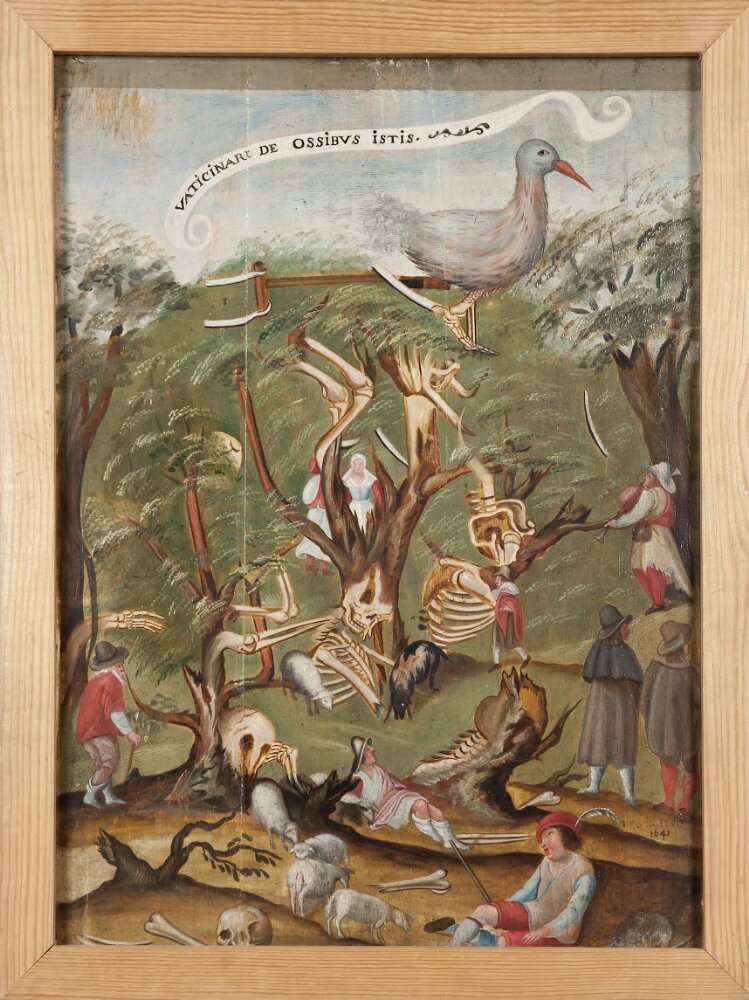 VATICINARE DE OSSIBVS ISTIS.
1643